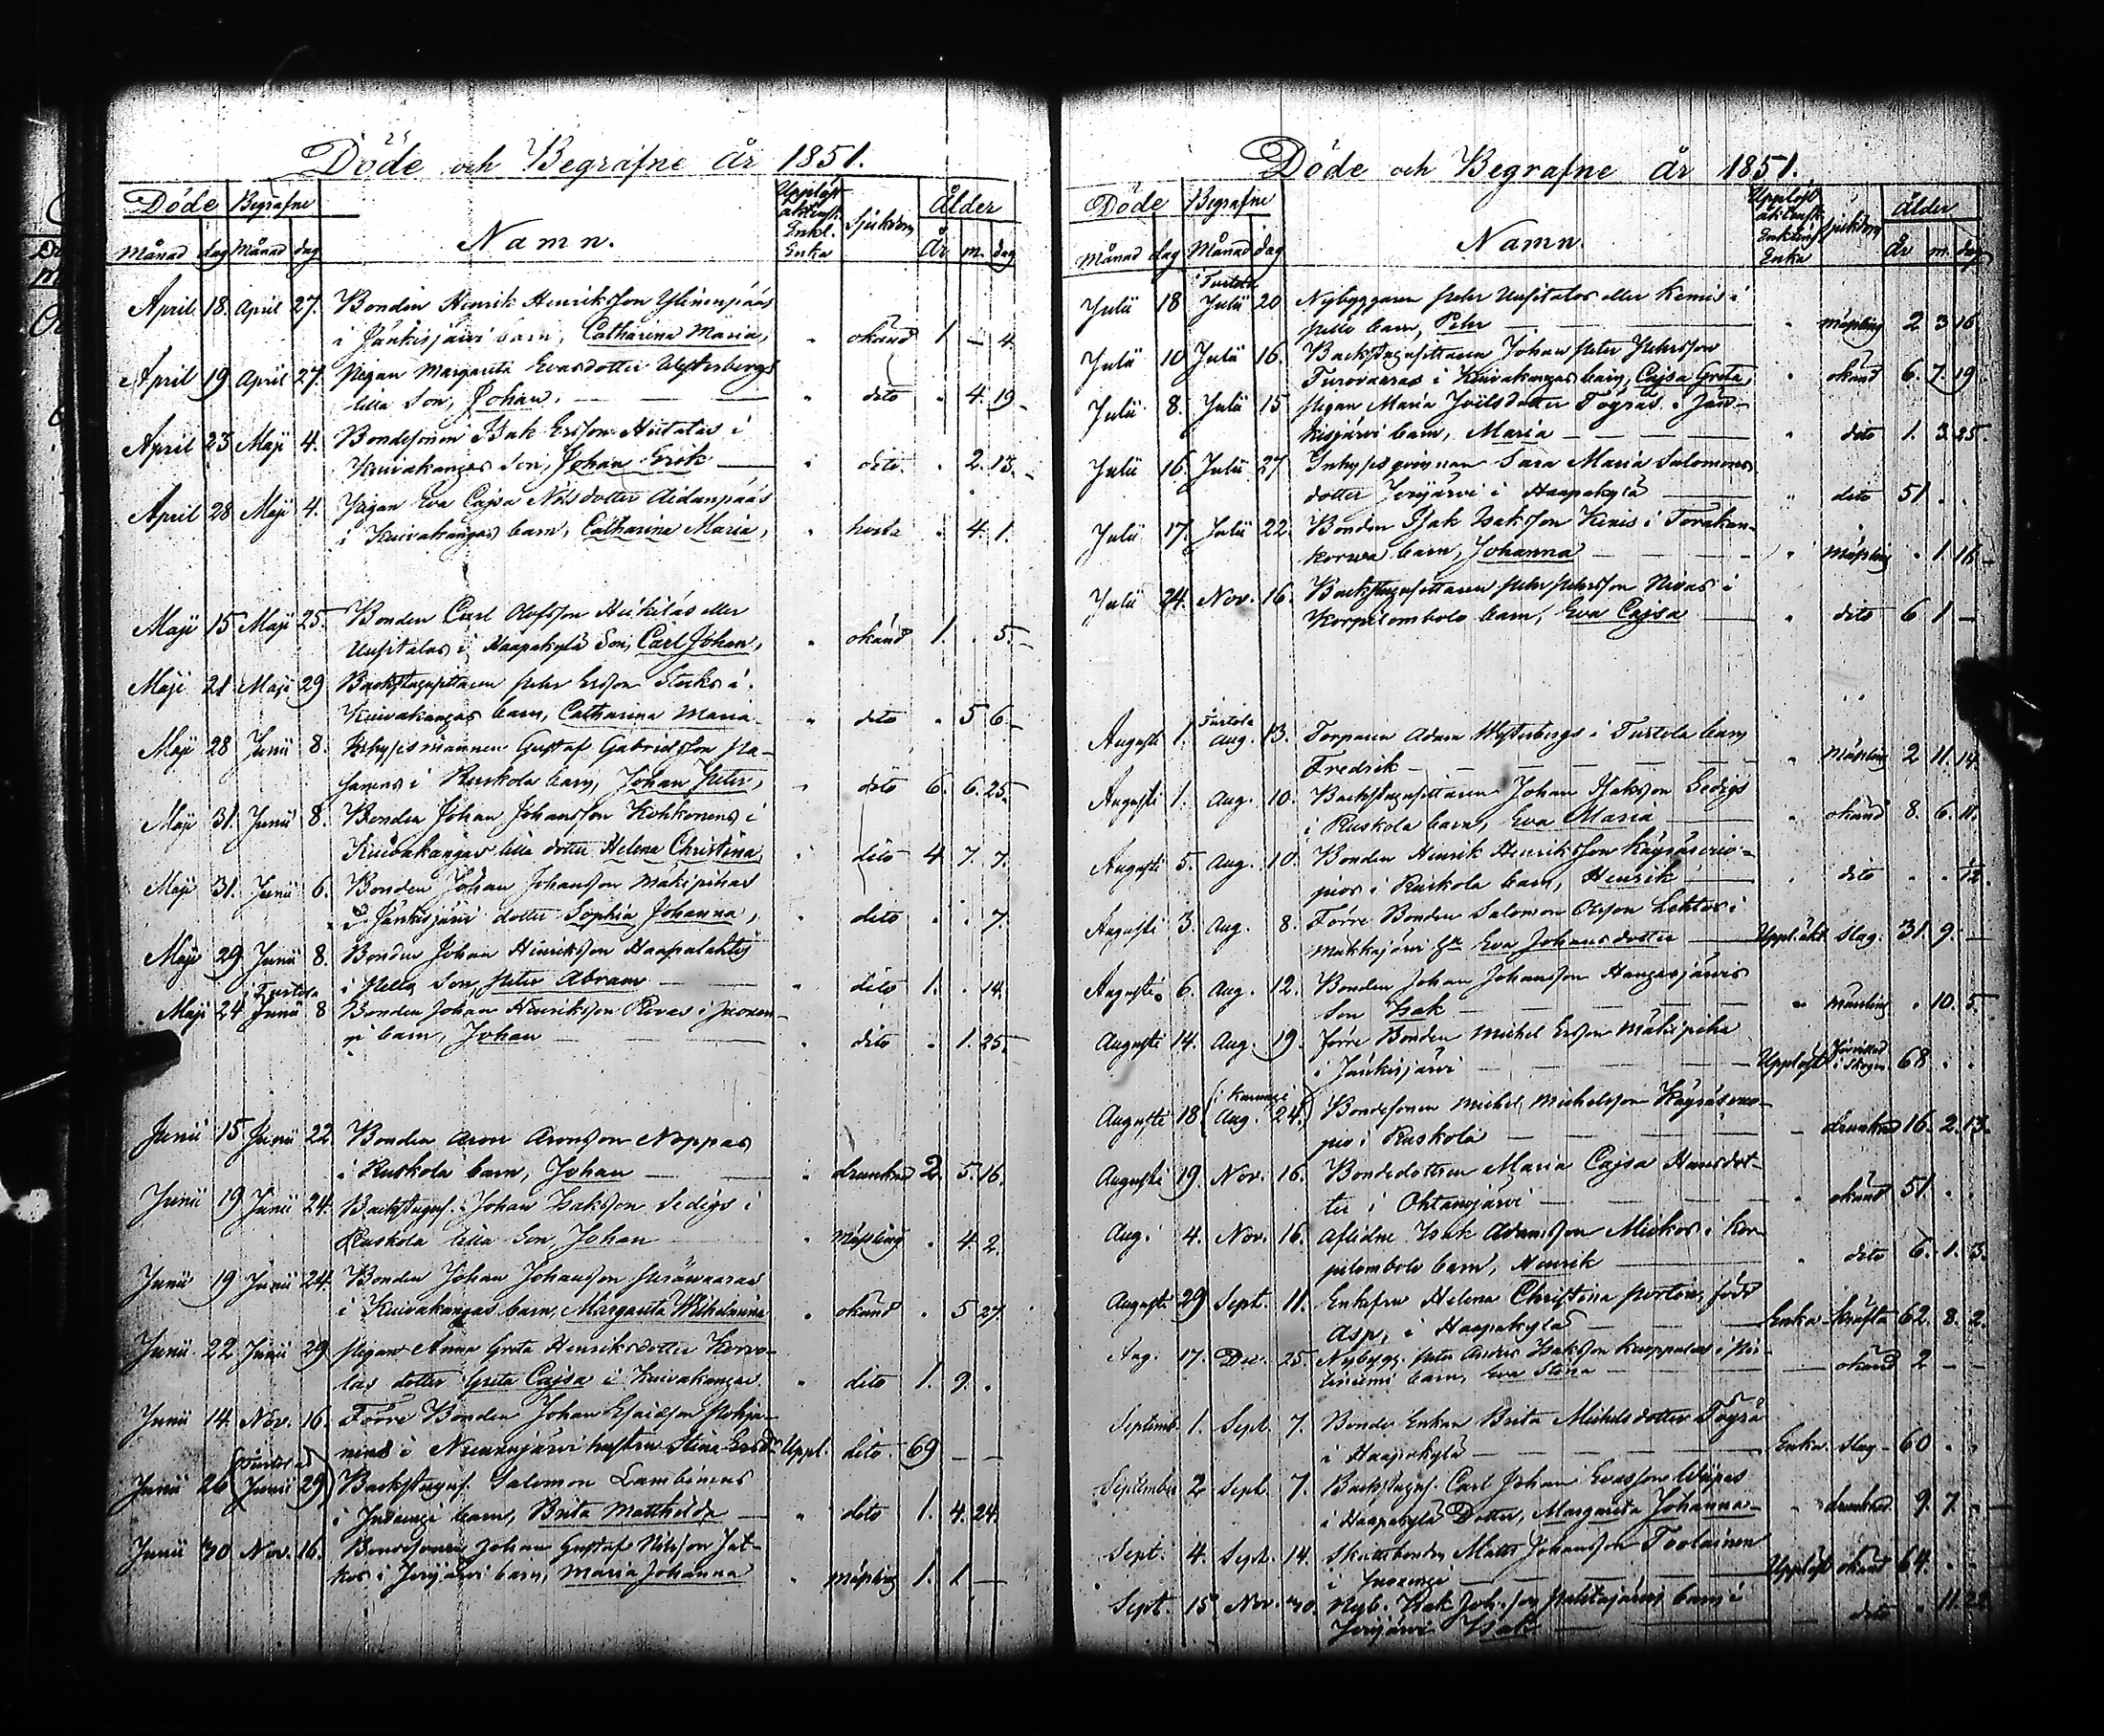 Döde och Begrafne år 1851.
Döde Begrafne Namn. Upplöst äktensk. Enkl. Enka Sjukdom Ålder
Månad dag Månad dag År m. dag
April 18. April 27. Bonden Henrik Henriksson
i Jänkisjärvi barn, Catharina Maria, " okänd 1 — 4.
April 19 April 27. Pigan Margareta Evasdotter Westerbergs
lilla Son, Johan. — " dito " 4. 19
April 23 Maji 4. Bondesonen Isak Ersson Hietalas i
Kuivakangas Son, Johan Erik — " dito. " 2. 13.
April 28 Maji 4. Pigan Eva Cajsa Nilsdotter Aidanpääs
i Kuivakangas barn, Catharina Maria, " hosta " 4. 1.
Maji 15 Maji 25. Bonden Carl Olofsson Heikiläs eller
Uusitalos i Haapakylä Son, Carl Johan, " okänd 1. . 5.
Maji 21 Maji 29 Backstugusittaren Pehr Ersson Stocks i
Kuivakangas barn, Catharina Maria " dito " 5 6
Maji 28 Junii 8. Inhysesmannen Gustaf Gabrielsson
i Ruskola barn, Johan Peter, " dito 6. 6. 25.
Maji 31. Junii 8. Bonden Johan Johansson Kohkonens i
Kuivakangas lilla dotter Helena Christina " dito 4 7. 7.
Maji 31. Junii 6. Bonden Johan Johansson Mäkipihas
i Jänkisjärvi dotter Sophia Johanna, " dito . . 7.
Maji 29 Junii 8. Bonden Johan Henriksson Haapalahtis
i Pello Son, Peter Abram — " dito 1. . 14.
i Turtola
Maji 24 Junii 8 Bonden Johan Henriksson Rovas i
barn, Johan — " dito . 1. 25.
Junii 15 Junii 22. Bonden Aron Aronsson Noppas
i Ruskola barn, Johan — " drunknad 2. 5. 16.
Junii 19 Junii 24. Backstugus. Johan Isaksson Sedigs i
Ruskola lilla Son, Johan " Mässling . 4. 2.
Junii 19 Junii 24. Bonden Johan Johansson Perävaaras
i Kuivakangas barn, Margareta Wilhelmina " okänd . 5 27.
Junii 22. Junii 29. Pigan Anna Greta Henriksdotter Korvo-
las dotter Greta Cajsa i Kuivakangas. " dito 1. 9. .
Junii 14. Nov. 16. Förre Bonden Johan Esaiasson Pohja-
nens i hustru Stina Ersdr Uppl. dito 69 — —
Junii 26 (Junii 29) Backstugus. Salomon Lambinens
i barn, Brita Mathilda — " dito 1. 4. 24.
Junii 30 Nov. 16. Bondesonen Johan Gustaf Nilsson Jat-
kos i Jerijärvi barn, Maria Johanna " mässling 1. 1 —
Döde och Begrafne år 1851.
Döde Begrafne Namn. Upplöst äktensk. Enkling Enka Sjukdom Ålder
Månad dag Månad dag År m. dag
i Turtola
Julii 18 Julii 20 Nybyggaren Pehr Uusitalos eller Kenis i
Pello barn, Pehr — " mässling 2 3 16
Julii 10 Julii 16. Backstugusittaren Johan Peter Pehrsson
Turovaaras i Kuivakangas barn, Cajsa Greta, " okänd 6. 7. 19.
Julii 8. Julii 15 Pigan Maria Joelsdotter Töyräs i Jän-
kisjärvi barn, Maria — " dito 1. 3. 25.
Julii 16. Julii 27 Inhysesqvinnan Sara Maria Salomons
dotter Jerijärvi i Haapakylä — " dito 51 . .
Julii 17. Julii 22. Bonden Isak Isaksson Kenis i Torakan-
korva barn, Johanna — " Mässling . 1. 16
Julii 24. Nov. 16. Backstugusittaren Pehr Pehrsson Nivas i
Korpilombolo barn, Eva Cajsa — " dito 6 1 —
Turtola
Augusti 1. Aug. 13. Torparen Adam Westerbergs i Turtola barn
Fredrik — " Mässling 2 11. 14.
Augusti 1. Aug. 10. Backstugusittaren Johan Isaksson Sedigs
i Ruskola barn, Eva Maria — " okänd 8. 6. 11.
Augusti 5. Aug. 10. Bonden Henrik Henriksson Käyräsvuo-
pios i Ruskola barn, Henrik — " dito . . 1/12.
Augusti 3. Aug. 8. Förre Bonden Salomon Olsson Lehtos i
hu Eva Johansdotter — Uppl.äkt slag. 31. 9. —
Augusti 6. Aug. 12. Bonden Johan Johansson Hangasjärvis
Son Isak — " Mässling . 10. 5.
Augusti 14. Aug. 19. Förre Bonden Michel Ersson Mäkipiha
i Jänkisjärvi — Upplöst i skogen 68. . .
i Karungi
Augusti 18 (Aug. 24.) Bondesonen Michel Michelsson Käyräsvuo-
pio i Ruskola — drunknad 16. 2. 13.
Augusti 19. Nov. 16. Bondedottren Maria Cajsa Hansdot-
ter i Ohtanajärvi — " okänd 51. . .
Aug. 4. Nov. 16. Aflidne Isak Adamsson Mickos i Kor-
pilombolo barn, Henrik — " dito 6. 1. 3.
Augusti 29 Sept. 11. Enkefru Helena Christina Portin, född
Asp, i Haapakylä — Enka kräfta 62. 8. 2.
Aug. 17. Dec. 25. Nybygg. Peter Anders Isaksson
barn, Eva Stina — okänd 2 — —
Septemb. 1. Sept. 7. Bonde Enkan Brita Michelsdotter Töyrä
i Haapakylä — Enka slag 60 . .
September 2 Sept. 7. Backstugus. Carl Johan Evasson
i Haapakylä Dotter, Margareta Johanna — " drunknad 9. 7. .
Sept. 4. Sept. 14. Skattebonden Matts Johansson Toolainen
i — Upplöst okänd 64. . .
Sept. 15 Nov. 30. Nyb. Isak Joh.sson barn i
Jerijärvi Isak — dito . 11. 22.